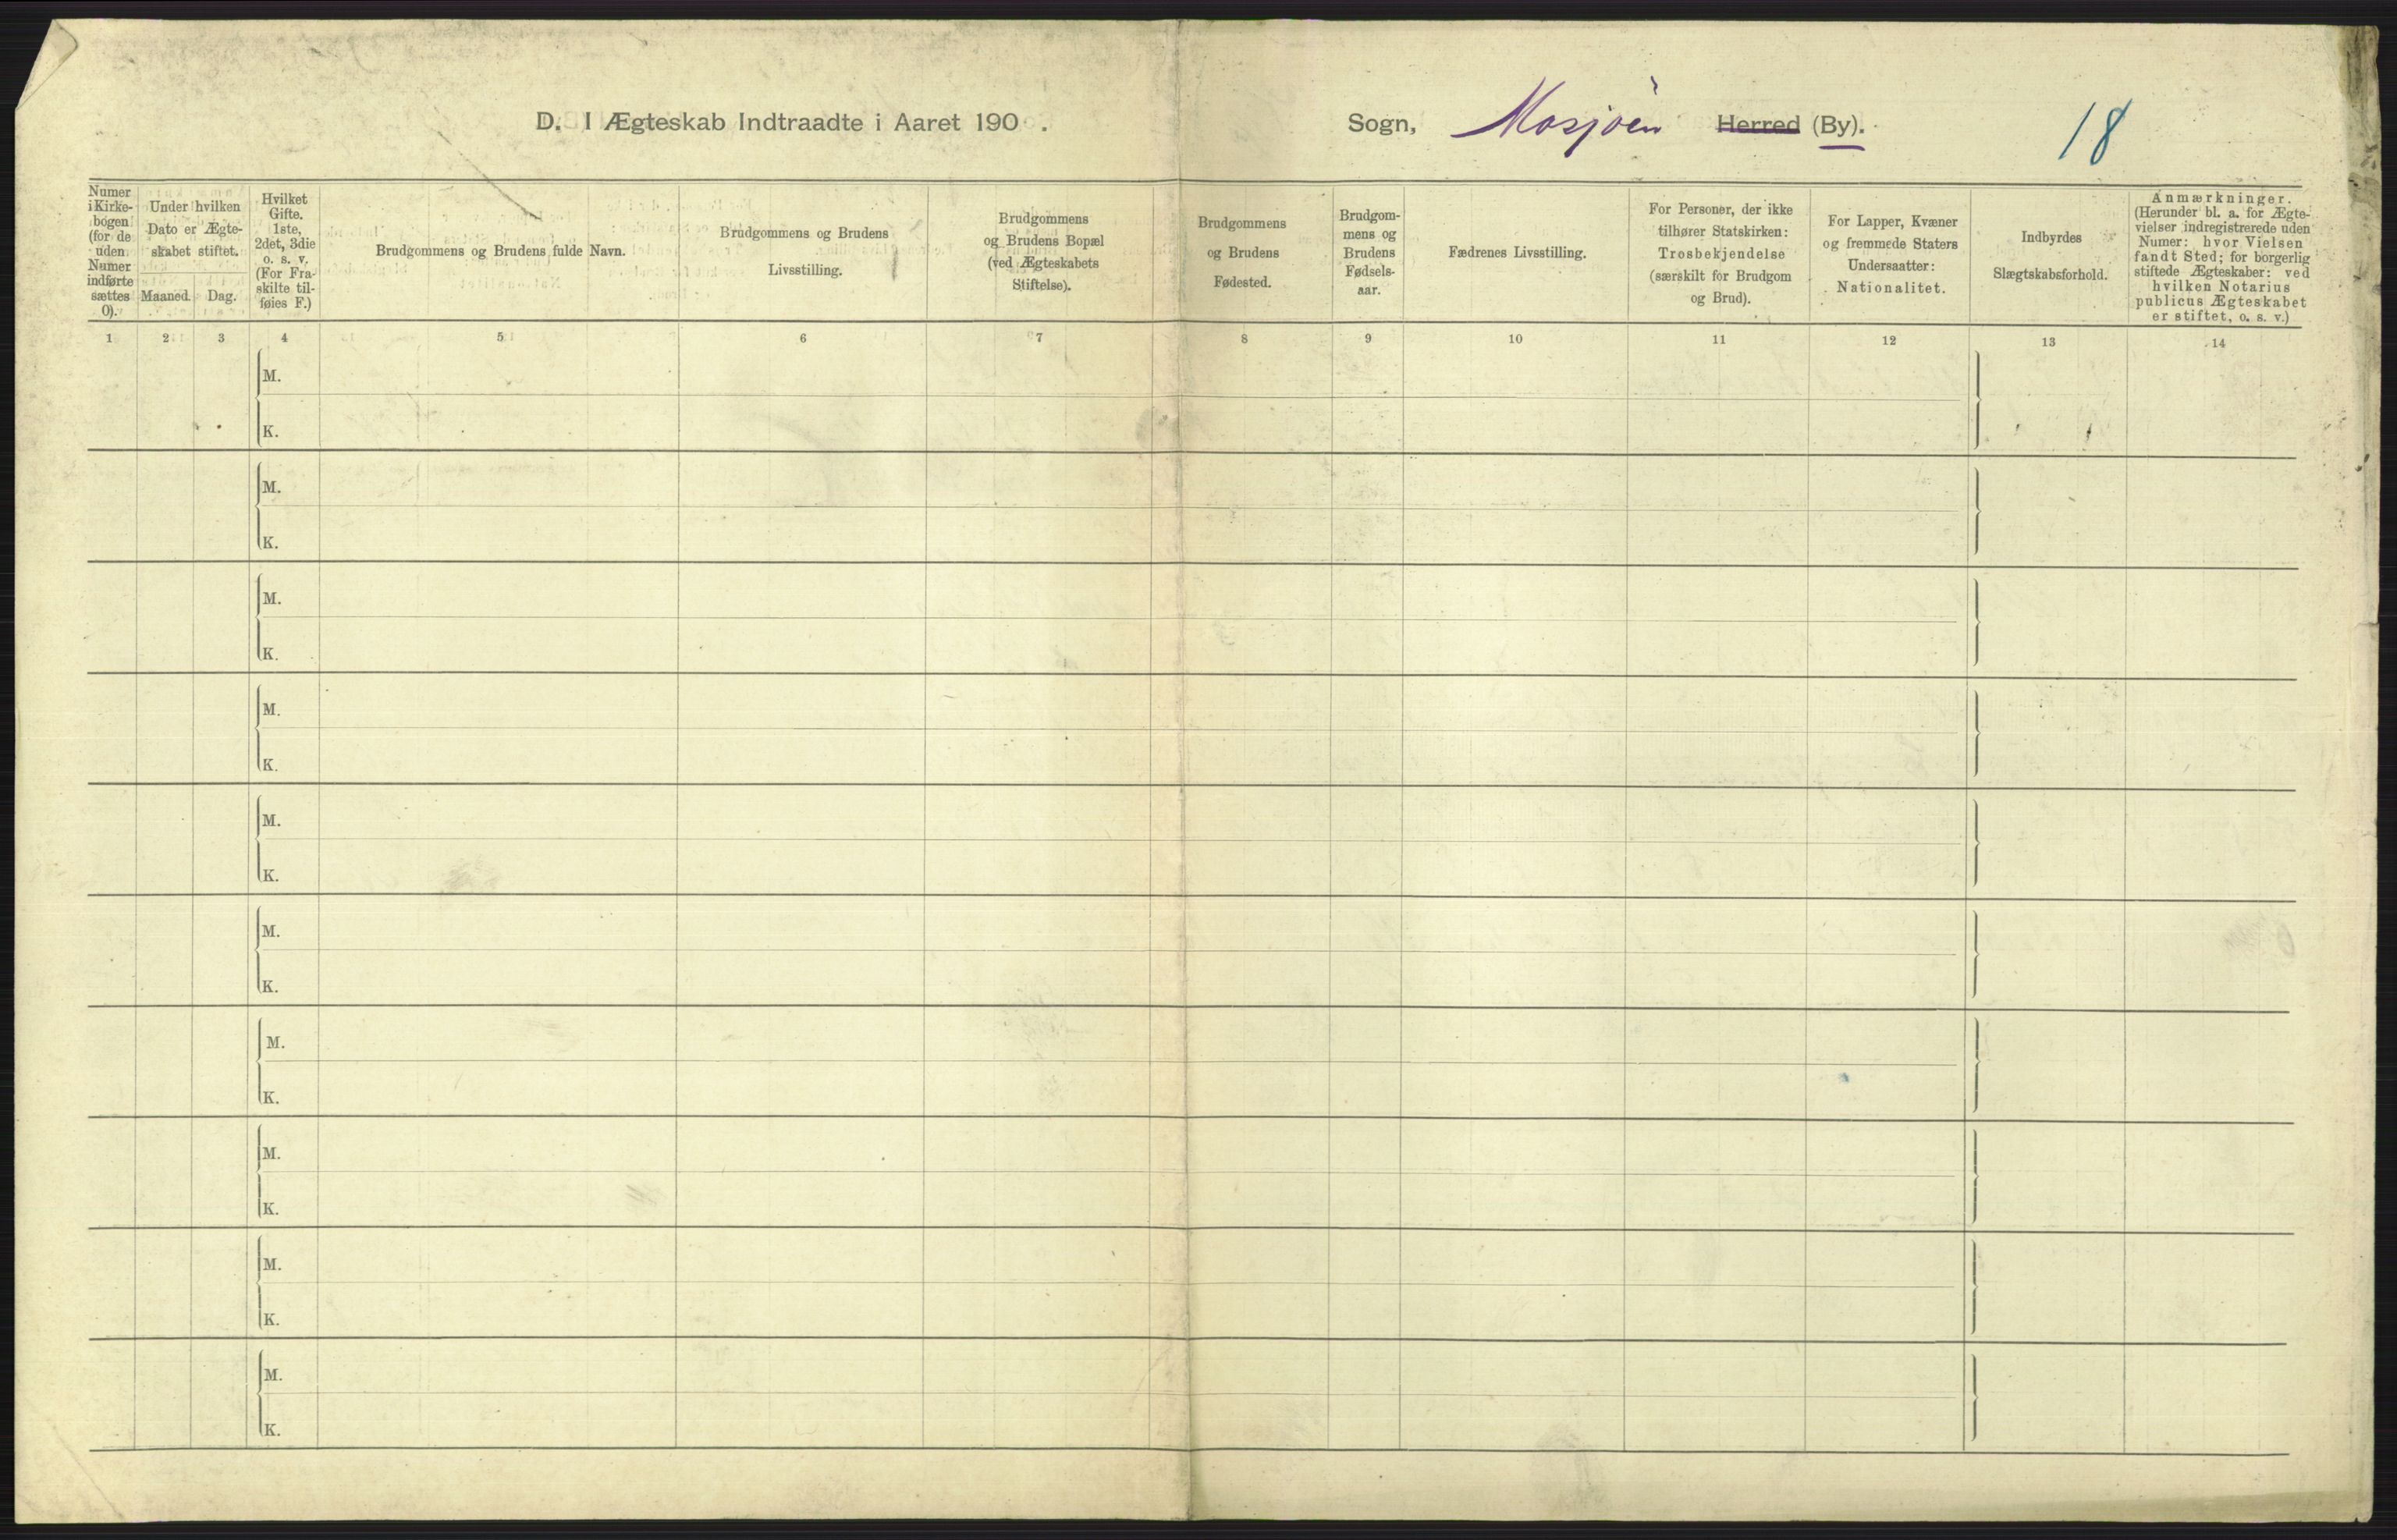 D. I Ægteskab Indtraadte i Aaret 190 .
Sogn, Mosjöen Herred (By).
18
Numer
i Kirke-
bogen
(for de
uden
Numer
indførte
sættes
0).
Under hvilken
Dato er Ægte-
skabet stiftet.
Maaned. Dag.
Hvilket
Gifte.
1ste,
2det, 3die
o. s. v.
(For Fra-
skilte til-
føies F.)
Brudgommens og Brudens fulde Navn.
Brudgommens og Brudens
Livsstilling.
Brudgommens
og Brudens Bopæl
(ved Ægteskabets
Stiftelse).
Brudgommens
og Brudens
Fødested.
Brudgom-
mens og
Brudens
Fødsels-
aar.
Fædrenes Livsstilling.
For Personer, der ikke
tilhører Statskirken:
Trosbekjendelse
(særskilt for Brudgom
og Brud).
For Lapper, Kvæner
og fremmede Staters
Undersaatter:
Nationalitet.
Indbyrdes
Slægtskabsforhold.
Anmærkninger.
(Herunder bl. a. for Ægte-
vielser indregistrerede uden
Numer: hvor Vielsen
fandt Sted; for borgerlig
stiftede Ægteskaber: ved
hvilken Notarius
publicus Ægteskabet
er stiftet, o. s. v.)
1 2 3 4 5 6 7 8 9 10 11 12 13 14
M.
K.
M.
K.
M.
K.
M.
K.
M.
K.
M.
K.
M.
K.
M.
K.
M.
K.
M.
K.